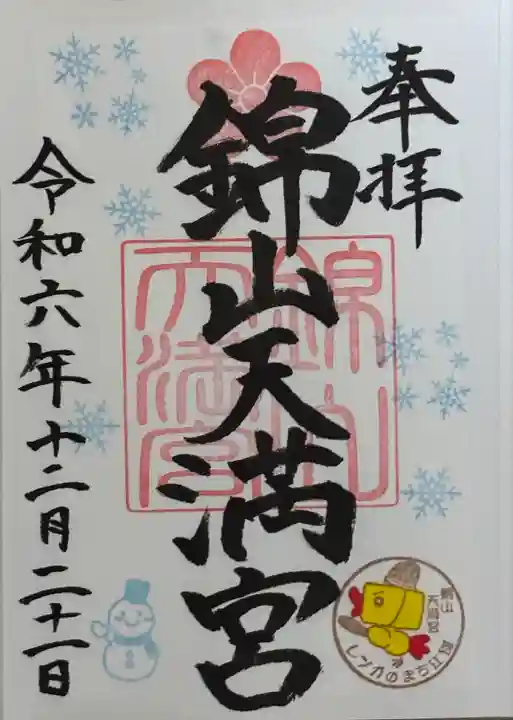 奉拝
錦山天満宮
令和六年十二月二十一日
錦山天満宮
錦山
天満宮
レンガのまち江別